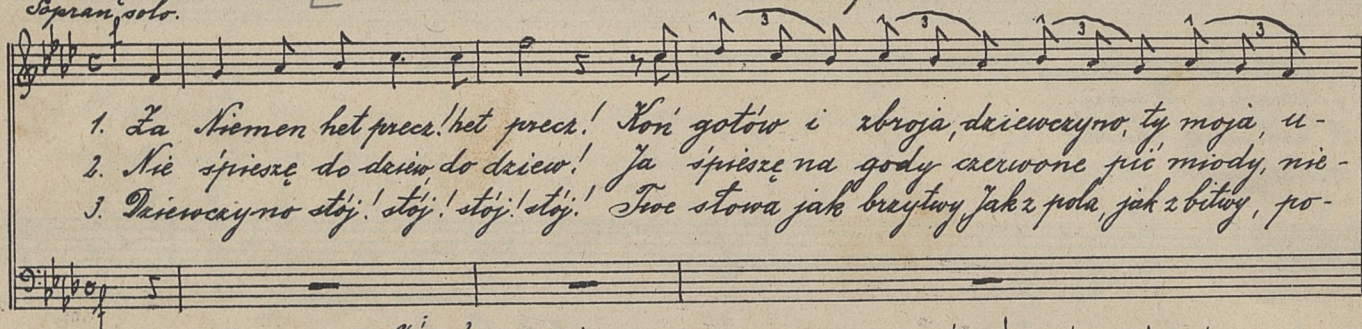 Sopran solo.
1. Za Niemen het precz! het precz! Koń gotów i zbroja, dziewczyno, ty moja, u-
2. Nie śpieszę do dziew, do dziew! Ja śpieszę na gody czerwone pić miody, nie-
3. Dziewczyno stój! stój! stój! stój! Twe słowa jak brzytwy, Jak z pola, jak z bitwy, po-